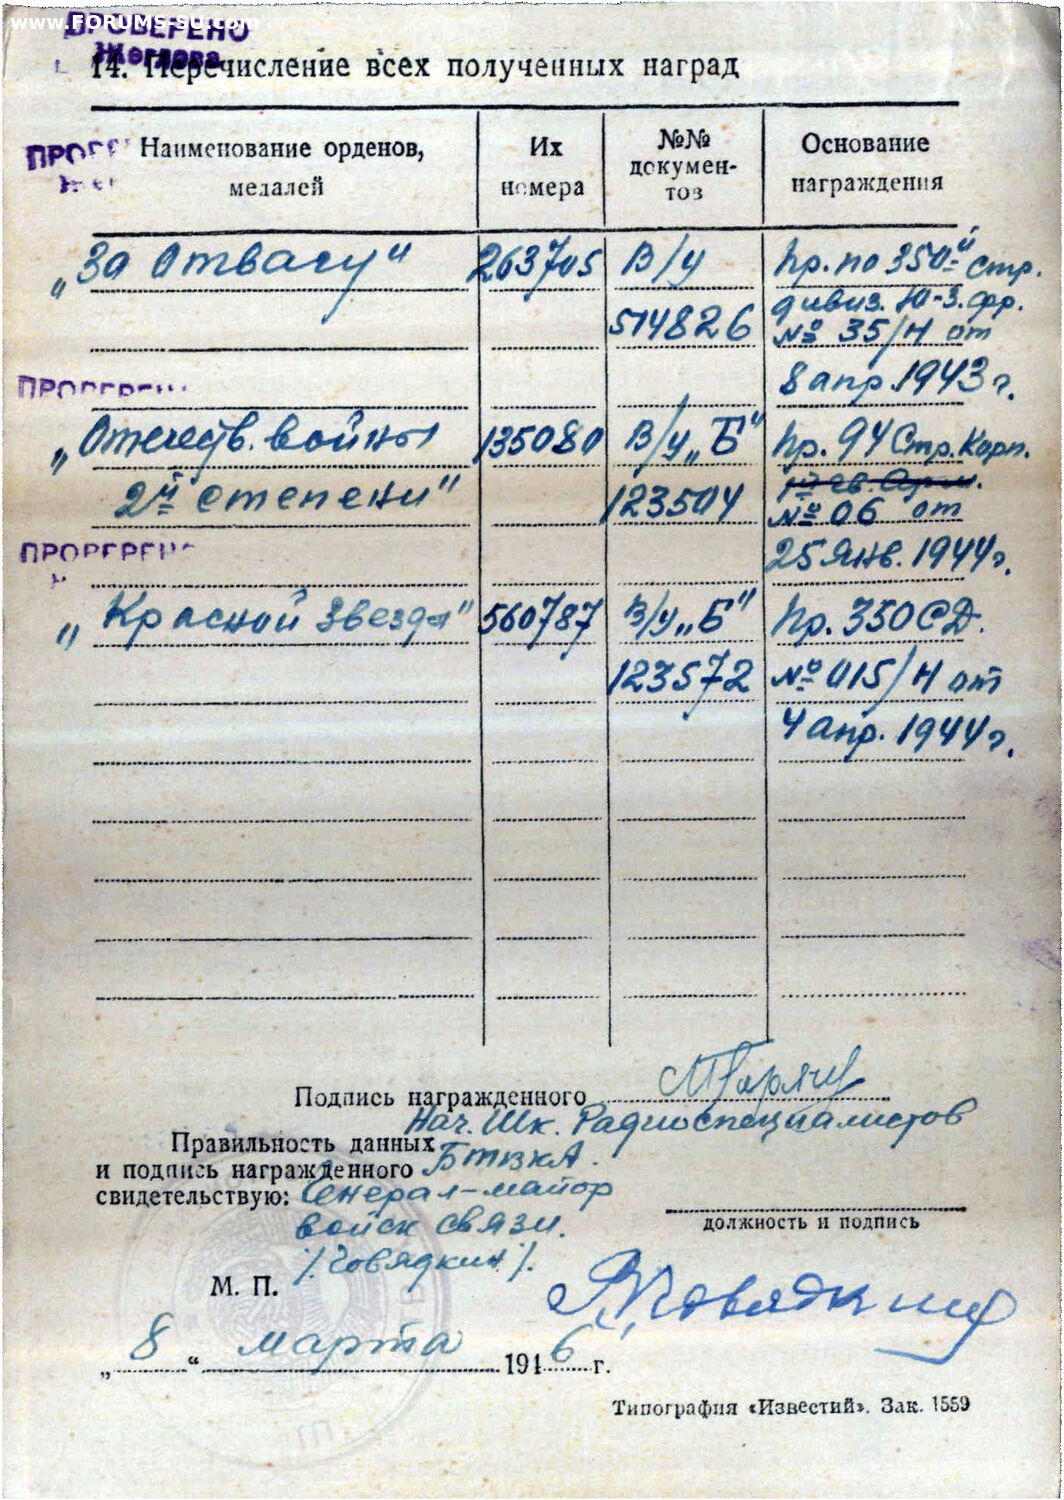 www.FORUMS-su.com
ПРОВЕРЕНО
14. Перечисление всех полученных наград
Наименование орденов, медалей
Их номера
№№ докумен-тов
Основание награждения
„За Отвагу" 263705 В/у пр. по 350й стр.
дивиз. Ю-З. фр.
514826 № 35/н от
8 апр. 1943 г.
ПРОВЕРЕНО
„Отечеств. войны 135080 В/у „Б" пр. 94 Стр. Корп.
2й степени" 123504 № 06 от
ПРОВЕРЕНО
25 янв. 1944 г.
„Красной Звезды" 560787 В/у „Б" пр. 350 СД.
123572 № 015/н от
4 апр. 1944 г.
Подпись награжденного
Нач. Шк. Радиоспециалистов
Правильность данных
и подпись награжденного
свидетельствую: Генерал-майор
войск связи.
/Говядкин/.
должность и подпись
М. П.
„8" марта 1946 г.
Типография «Известий». Зак. 1559